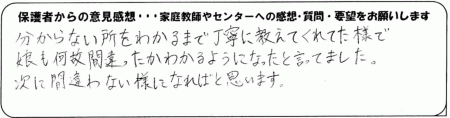 保護者からの意見感想・・・家庭教師やセンターへの感想・質問・要望をお願いします
分からない所をわかるまで丁寧に教えてくれてた様で
娘も何故間違ったかわかるようになったと言ってました。
次に間違わない様になればと思います。